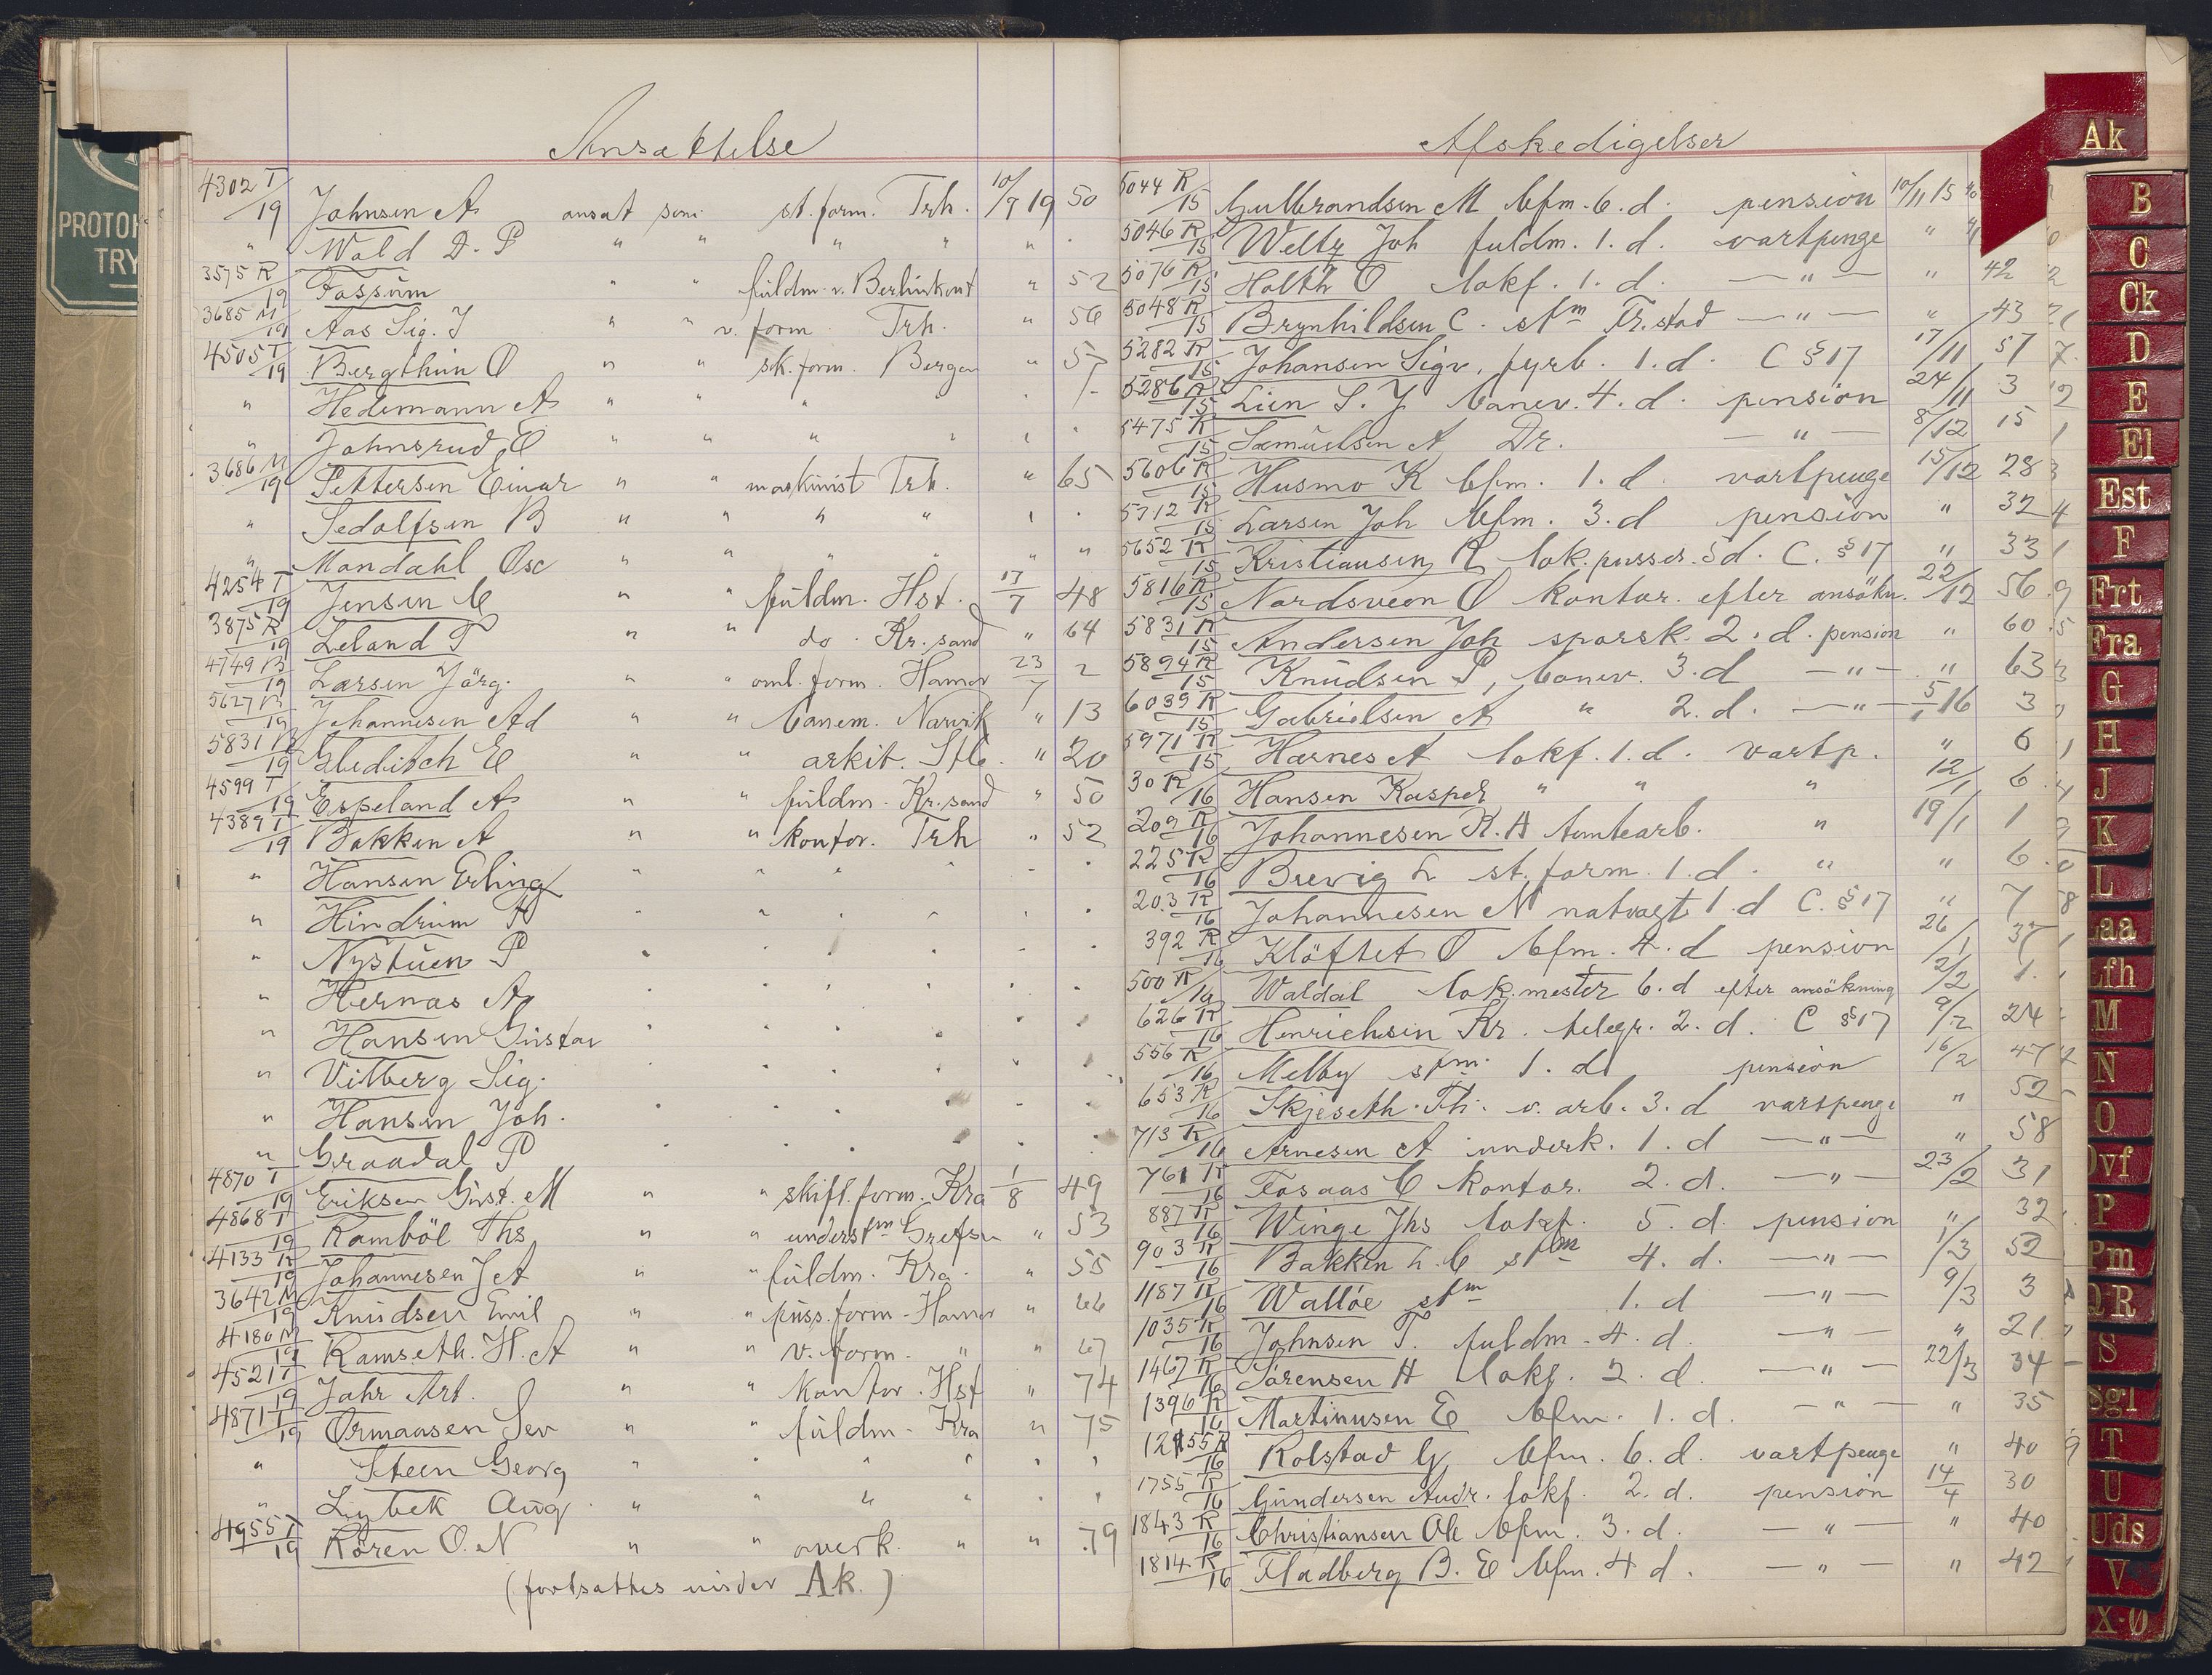 PROTOK
TRY
Ansættelse
4302 T/19 Johnsen A ansat som st.form. Trh. 10/7 19 50
" Wold D. P " " " " " "
3575 R/19 Fossum " " fuldm. v. " 52
3685 M/19 Aas Sig. J " " v. form. Trh. " 56
4505 T/19 Bergthun O " " sk.form. Bergen " 57
" Hedemann A " " " "
" Johnsrud E " " " "
3686 M/19 Pettersen Einar " " maskinist Trh. " 65
" Sedolfsen B " " " "
" Mandahl Osc " " " " " "
4254 T/19 Jensen C " " fuldm. Hst. 17/7 48
3875 R/19 Leland T " " do. Kr.sand " 64
4749 B/19 Larsen Jörg. " " oml. form. Hamar 23/7 2
5627 B/19 Johannesen Ad " " banem. Narvik " 13
5831 B/19 Gleditch E " " arkit. Stb. " 20
4599 T/19 Espeland A " " fuldm. Kr.sand " 50
4389 T/19 Bakken A " " kontor. Trh " 52
" Hansen Erling " " " "
" Hindrum
" Nystuen P
" Hernas A
" Hansen Gustav
" Vitberg Sig.
" Hansen Joh.
" Graadal P
4870 T/19 Eriksen Gust. M " " skift.form. Kra 1/8 49
4868 T/19 Ramböl Ths " " underst.m Grefsen " 53
4133 R/19 Johannesen J A " " fuldm. Kra. " 55
3642 M/19 Knudsen Emil " " puss.form. Hamar " 66
4180 M/19 Ramseth. H. A " " v. form. " " 67
4521 T/19 Jahr Art. " " Kontor. Hst " 74
4871 T/19 Ormaasen Sev " " fuldm. Kra " 75
" Steen Georg " " " "
" Lybek Aug " " " "
4955 T/19 Rören O. N " " overk. " " 79
(fortsættes under Ak.)
Afskedigelser
5044 R/15 Gulbrandsen M bfm. 6. d. pension 10/11 15 40
5046 R/15 Weltz Joh fuldm. 1. d. vartpenge " 41
5076 R/15 Holth O lokf. 1. d. — " — " 42
5048 R/15 Brynhildsen C. stm Fr.stad — " — " 43
5282 R/15 Johansen Sigv. fyrb. 1. d. C § 17 17/11 57
5286 R/15 Lien S. J banev. 4. d. pension 24/11 3
5475 R/15 Samuelsen A Dr. — " — 8/12 15
5606 R/15 Husmo K bfm. 1. d. vartpenge 15/12 28
5712 R/15 Larsen Joh bfm. 3. d pension " 32
5652 R/15 Kristiansen R lok.pusser. 5 d. C. § 17 " 33
5816 R/15 Nordsveen O kontor. efter ansökn. 22/12 56
5831 R/15 Andersen Joh sporsk. 2. d. pension " 60
5894 R/15 Knudsen P, banev. 3. d — " — " 63
6039 R/15 Gabrielsen A " 2. d. — " — 5/1 16 3
5971 R/15 Harnes A lokf. 1. d. vartp. " 6
30 R/16 Hansen Kasper " " " 12/1 6
209 R/16 Johannesen K. A tomtearb. " 19/1 1
225 R/16 Brevig L st. form. 1. d. " " 6
203 R/16 Johannesen N natvagt 1. d C. § 17 " 7
392 R/16 Klöftet O bfm. 4. d pension 26/1 37
500 R/16 Waldal lok.mester 6. d efter ansökning 2/2 1.
626 R/16 Henrichsen Kr. telegr. 2. d. C § 17 9/2 24
556 R/16 Melby stm. 1. d pension 16/2 47
653 R/16 Skjeseth Th. v. arb. 3. d vartpenge " 52
713 R/16 Arnesen A underk. 1. d — " — " 58
761 R/16 Fosaas C kontor. 2. d. — " — 23/2 31
887 R/16 Winge Jhs lokf. 5. d. pension " 32
903 R/16 Bakken L. C stm 4. d. — " — 1/3 52
1187 R/16 Walløe stm 1. d — " — 9/3 3
1035 R/16 Johnsen T. fuldm. 4. d. — " — " 21
1467 R/16 Sörensen H lokf. 2. d. — " — 22/3 34
1396 R/16 Martinusen E bfm. 1. d. — " — " 35
1255 R/16 Rolstad G bfm. 6. d. vartpenge " 40
1755 R/16 Gundersen Andr. lokf. 2. d. pension 14/4 30
1843 R/16 Christiansen Ole bfm. 3. d. — " — " 40
1814 R/16 Fladberg B. E bfm. 4 d. — " — " 42
Ak
B
C
Ck
D
E
El
Est
F
Frt
Fra
G
H
J
K
L
Laa
Lfh
M
N
O
Ovf
P
Pm
QR
S
Sgl
T
U
Uds
V
X-Ø